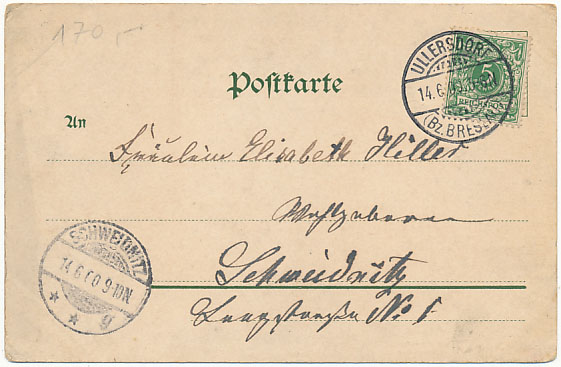 170,-
Postkarte
ULLERSDORF
14.6.00
(Bz. BRESLAU)
5
REICHSPOST
An
Fräulein Elisabeth Hiller
Wohlgeboren
Schweidnitz
No 1
SCHWEIDNITZ
14.6.00.9-10N
* g *